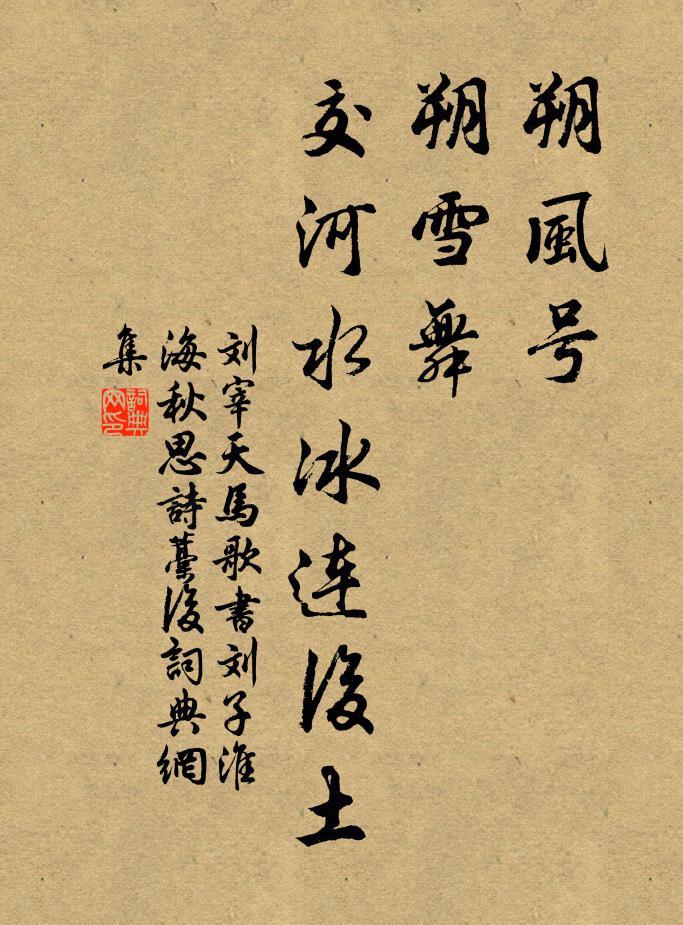 朔風号
朔雪舞
交河水冰連後土
刘宰天馬歌書刘子淮
海秋思詩藁後詞典網
集
詞典網印